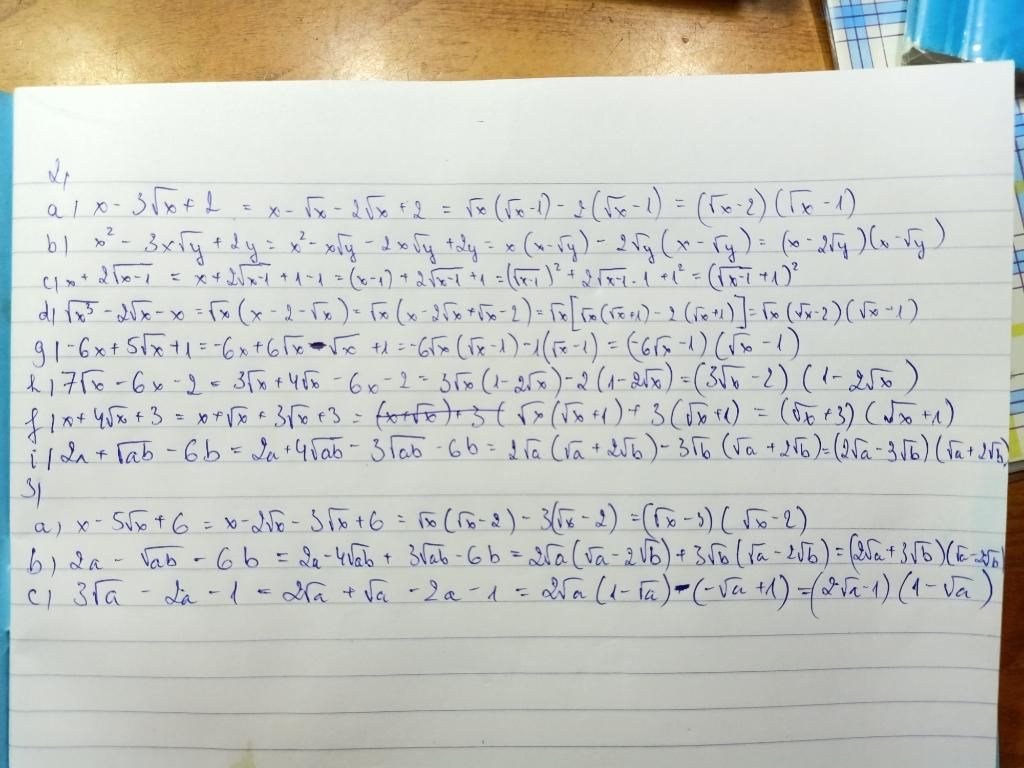 2,
a, x - 3√x + 2 = x - √x - 2√x + 2 = √x (√x - 1) - 2 (√x - 1) = (√x - 2) (√x - 1)
b) x² - 3x√y + 2y = x² - x√y - 2x√y + 2y = x (x - √y) - 2√y (x - √y) = (x - 2√y) (x - √y)
c, x + 2√x-1 = x + 2√x-1 + 1 - 1 = (x - 1) + 2√x-1 + 1 = (√x-1)² + 2√x-1 . 1 + 1² = (√x-1 + 1)²
d, √x³ - 2√x - x = √x (x - 2 - √x) = √x (x - 2√x + √x - 2) = √x [√x (√x + 1) - 2 (√x + 1)] = √x (√x - 2) (√x - 1)
g, -6x + 5√x + 1 = -6x + 6√x - √x + 1 = -6√x (√x - 1) - 1(√x - 1) = (-6√x - 1) (√x - 1)
h, 7√x - 6x - 2 = 3√x + 4√x - 6x - 2 = 3√x (1 - 2√x) - 2 (1 - 2√x) = (3√x - 2) (1 - 2√x)
f, x + 4√x + 3 = x + √x + 3√x + 3 = (x + √x) + 3 ( √x (√x + 1) + 3 (√x + 1) = (√x + 3) (√x + 1)
i, 2a + √ab - 6b = 2a + 4√ab - 3√ab - 6b = 2√a (√a + 2√b) - 3√b (√a + 2√b) = (2√a - 3√b) (√a + 2√b)
3,
a, x - 5√x + 6 = x - 2√x - 3√x + 6 = √x (√x - 2) - 3(√x - 2) = (√x - 3) (√x - 2)
b, 2a - √ab - 6b = 2a - 4√ab + 3√ab - 6b = 2√a (√a - 2√b) + 3√b (√a - 2√b) = (2√a + 3√b) (√a - 2√b)
c, 3√a - 2a - 1 = 2√a + √a - 2a - 1 = 2√a (1 - √a) - (-√a + 1) = (2√a - 1) (1 - √a)